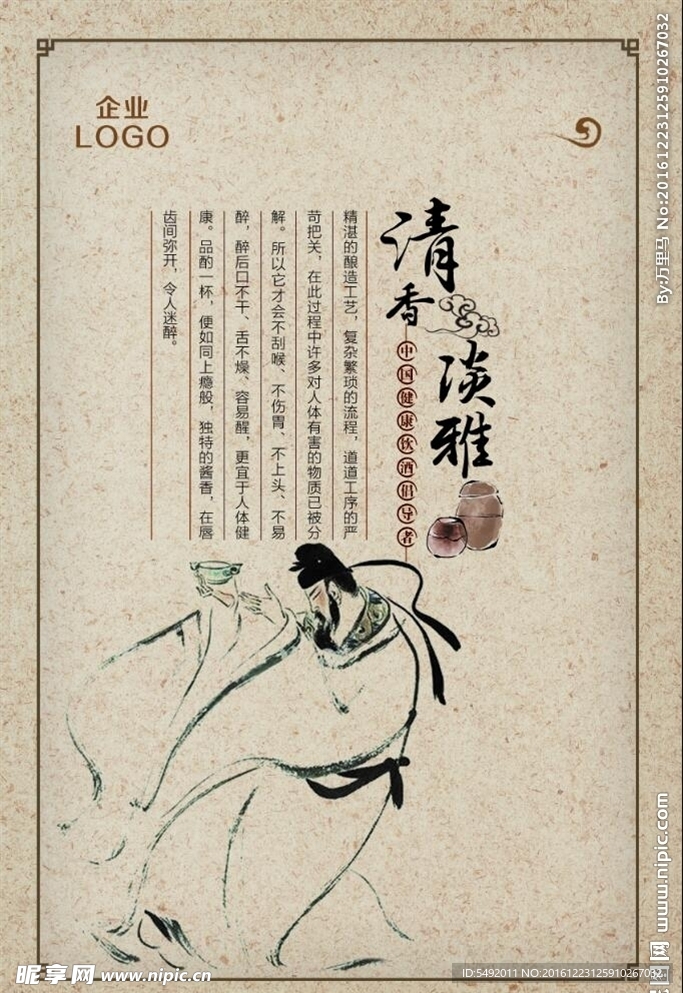 企业
LOGO
清香
淡雅
中国健康饮酒倡导者
精湛的酿造工艺，复杂繁琐的流程，道道工序的严
苛把关，在此过程中许多对人体有害的物质已被分
解。所以它才会不刮喉、不伤胃、不上头、不易
醉，醉后口不干、舌不燥、容易醒，更宜于人体健
康。品酌一杯，便如同上瘾般，独特的酱香，在唇
齿间弥开，令人迷醉。
By:万里马 No:20161223125910267032
www.nipic.com
昵图网
昵享网 www.nipic.cn
ID:5492011 NO:20161223125910267032